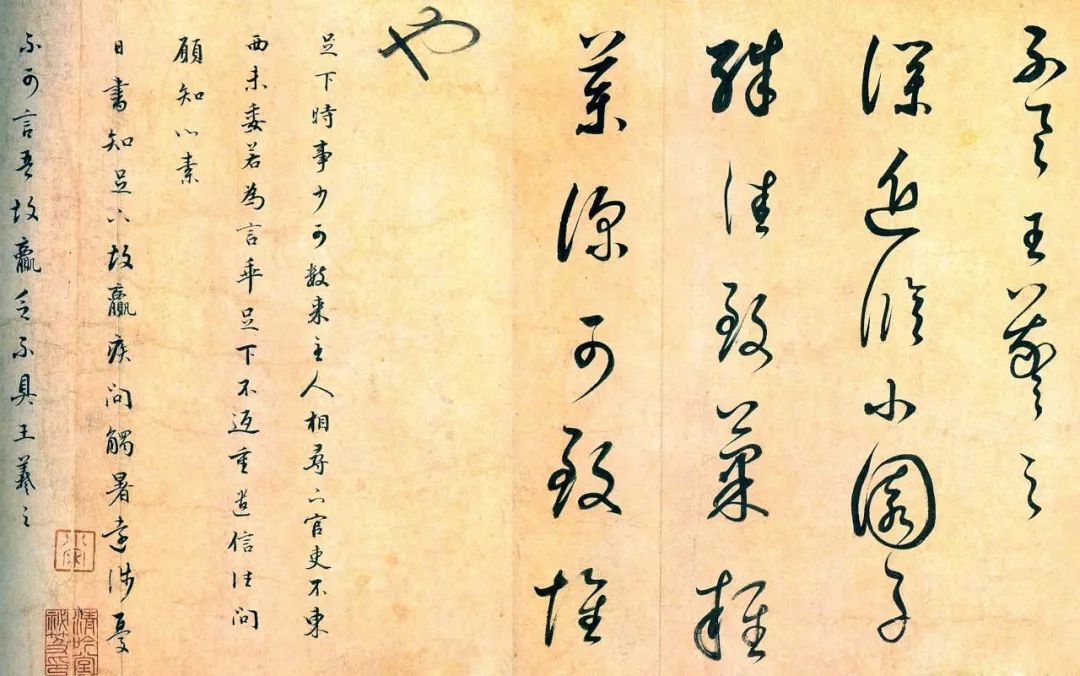 不具王羲之
僕近修小園子
殊佳致果雜
藥深可致懷
也
足下時事少可數来主人相尋下官吏不東
西未委若為言乖足下不返重遣信往問
願知心素
日書知足下故羸疾問觸暑遠涉憂
不可言吾故羸乏不具王羲之
清吟堂